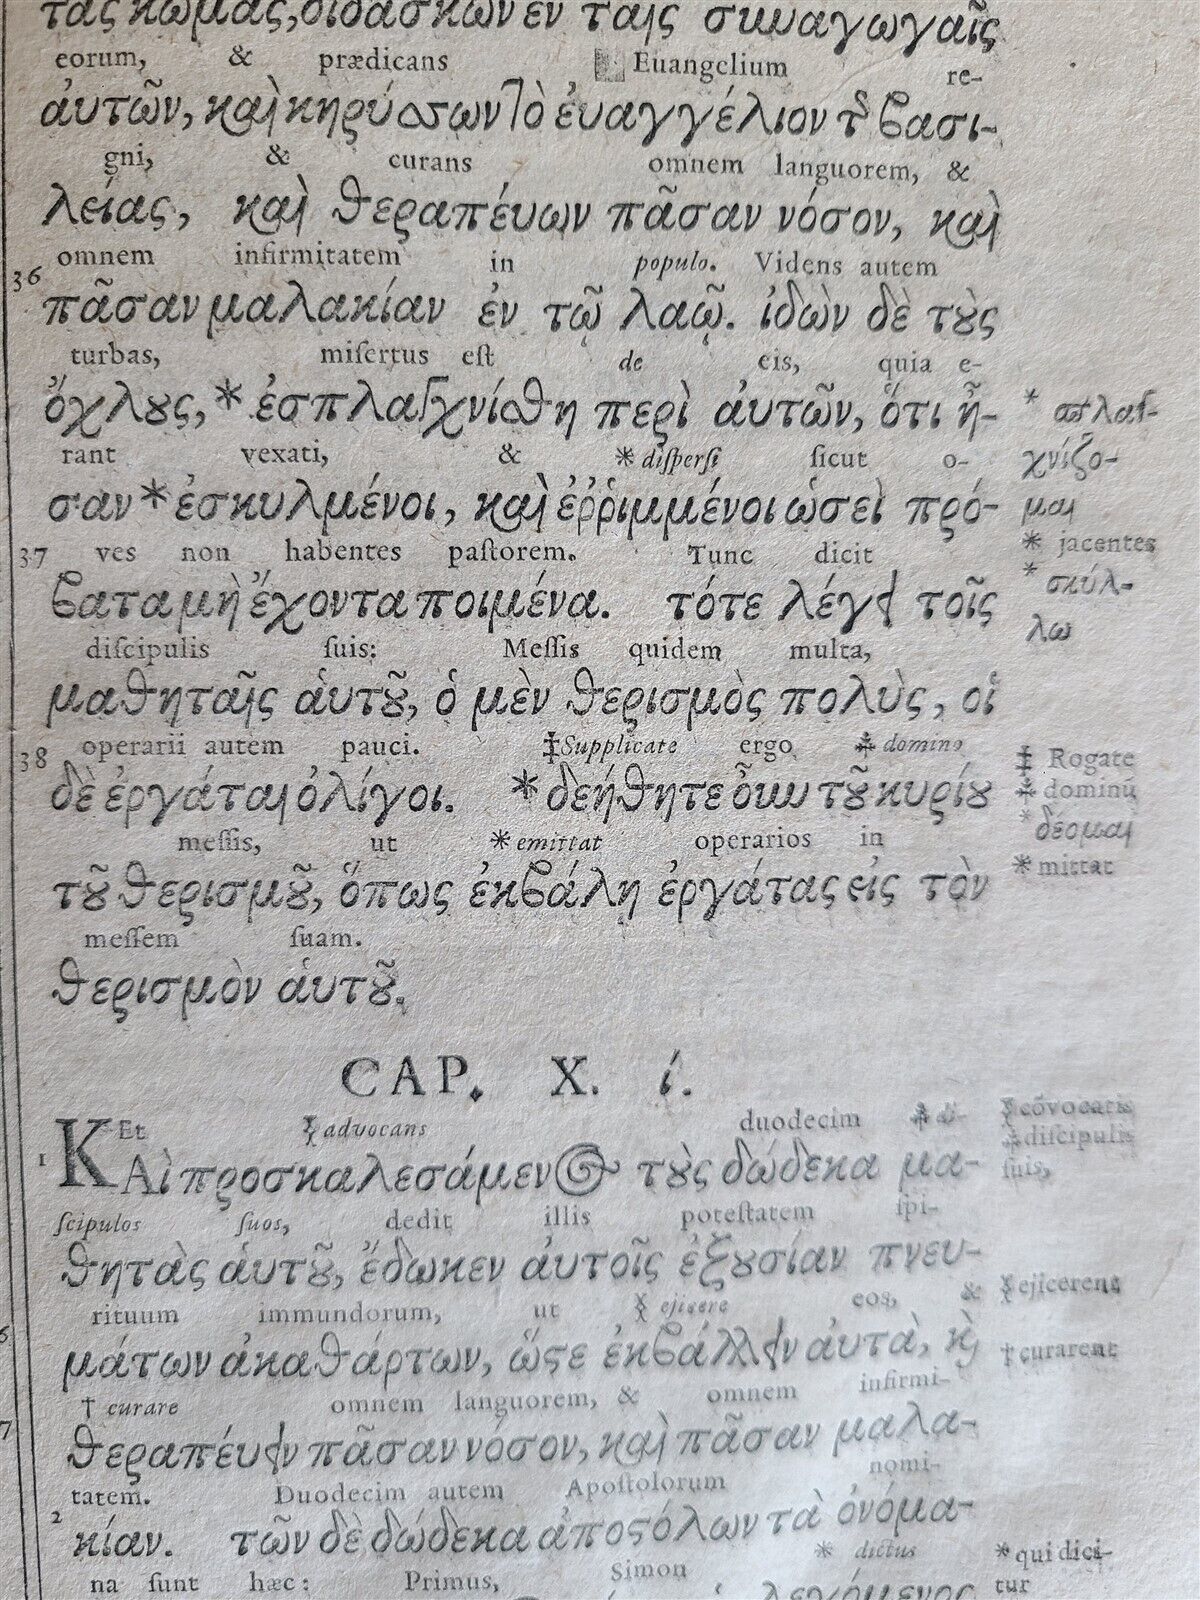 τὰς κώμας, διδάσκων ἐν ταῖς συναγωγαῖς
eorum, & prædicans Euangelium re-
ἀυτῶν, καὶ κηρύσσων τὸ ἐυαγγέλιον τῆς βασι-
gni, & curans omnem languorem, &
λείας, καὶ θεραπέυων πᾶσαν νόσον, καὶ
omnem infirmitatem in populo. Videns autem
36 πᾶσαν μαλακίαν ἐν τῷ λαῷ. ἰδὼν δὲ τοὺς
turbas, miſertus eſt de eis, quia e-
ὄχλους, * ἐσπλαγχνίσθη περὶ ἀυτῶν, ὅτι ἦ- * σπλαγ-
rant vexati, & * diſperſi ſicut o- χνίζο-
σαν * ἐσκυλμένοι, καὶ ἐῤῥιμμένοι ὡσεὶ πρό- μαι
37 ves non habentes paſtorem. Tunc dicit * jacentes
βατα μὴ ἔχοντα ποιμένα. τότε λέγει τοῖς * σκύλ-
diſcipulis ſuis: Meſſis quidem multa, λω
μαθηταῖς ἁυτοῦ, ὁ μὲν θερισμὸς πολὺς, οἱ
38 operarii autem pauci. ‡Supplicate ergo ⸙ domino ‡ Rogate
δὲ ἐργάται ὀλίγοι. * δεήθητε οὖν τοῦ κυρίου ⸙ dominū
meſſis, ut * emittat operarios in * δέομαι
τοῦ θερισμοῦ, ὅπως ἐκβάλη ἐργάτας εἰς τὸν * mittat
meſſem ſuam.
θερισμὸν ἁυτοῦ.
CAP. X. ί.
Et advocans duodecim di- cōvocatis
1 ΚΑὶ προσκαλεσάμενος τοὺς δώδεκα μα- diſcipulis
ſcipulos ſuos, dedit illis poteſtatem ſpi- ſuis,
θητὰς ἁυτοῦ, ἔδωκεν ἀυτοῖς ἐξουσίαν πνευ-
rituum immundorum, ut ejicere eos, & ejicerent
μάτων ἀκαθάρτων, ὥστε ἐκβάλλειν ἀυτὰ, καὶ † curarent
† curare omnem languorem, & omnem infirmi-
θεραπέυειν πᾶσαν νόσον, καὶ πᾶσαν μαλα-
tatem. Duodecim autem Apoſtolorum nomi-
2 κίαν. τῶν δὲ δώδεκα ἀποστόλων τὰ ὀνόμα-
na ſunt hæc: Primus, Simon * dictus * qui dici-
λεγόμενος tur